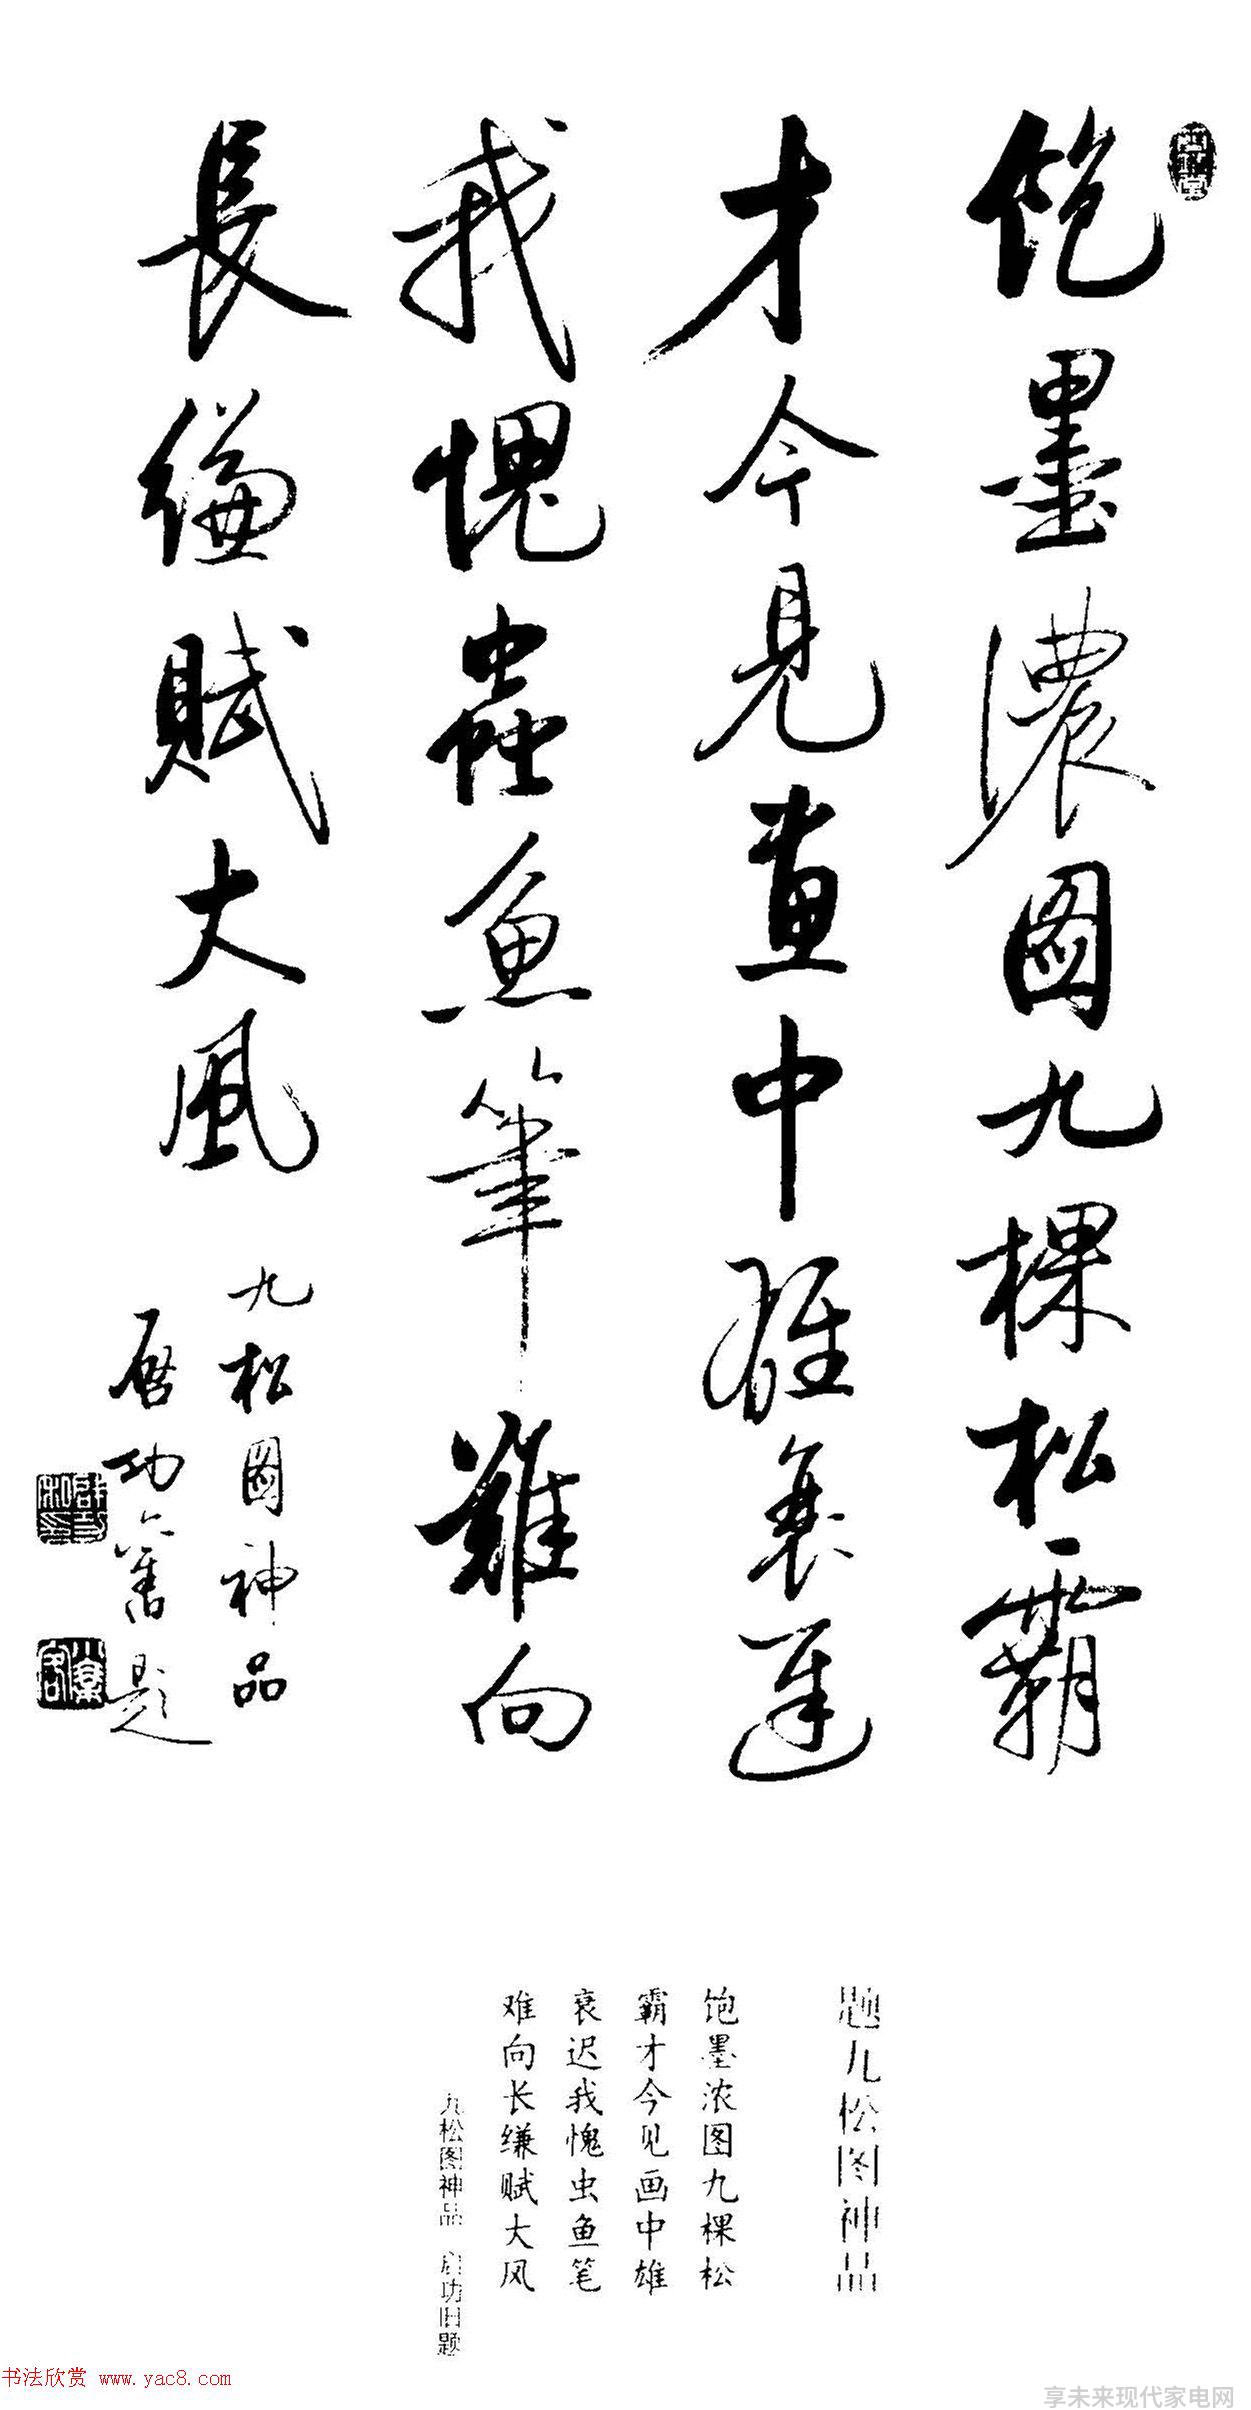 饱墨濃图九棵松霸
才今見畫中雄衰遲
我愧蟲魚筆難向
長縑賦大風
九松图神品
启功舊题
题九松图神品
饱墨浓图九棵松
霸才今见画中雄
衰迟我愧虫鱼笔
难向长缣赋大风
九松图神品 启功旧题
书法欣赏 www.yac8.com
享未来现代家电网